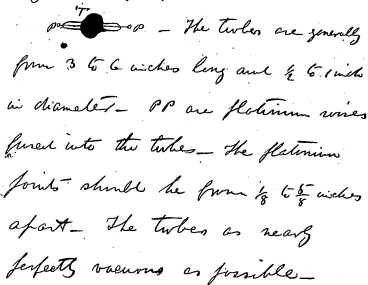 T
P P — The tubes are generally
from 3 to 6 inches long and 1/2 to 1 inch
in diameter — PP are platinum wires
fused into the tubes — The platinum
points should be from 1/8 to 5/8 inches
apart — The tubes as nearly
perfectly vacuous as possible —